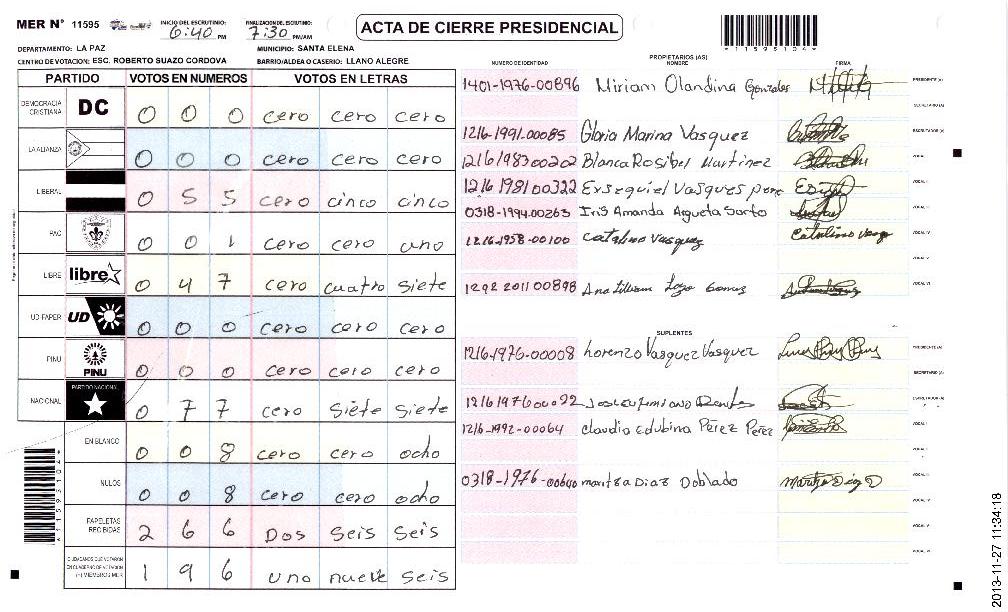 MER N° 11595 INICIO DEL ESCRUTINIO: 6:40 PM FINALIZACION DEL ESCRUTINIO: 7:30 PM/AM
ACTA DE CIERRE PRESIDENCIAL
*1159510 4*
DEPARTAMENTO: LA PAZ MUNICIPIO: SANTA ELENA
CENTRO DE VOTACION: ESC. ROBERTO SUAZO CORDOVA BARRIO/ALDEA O CASERIO: LLANO ALEGRE
PARTIDO VOTOS EN NUMEROS VOTOS EN LETRAS
DEMOCRACIA CRISTIANA DC 0 0 0 cero cero cero
LA ALIANZA 0 0 0 cero cero cero
LIBERAL 0 5 5 cero cinco cinco
PAC 0 0 1 cero cero uno
LIBRE libre 0 4 7 cero cuatro siete
UD FAPER UD 0 0 0 cero cero cero
PINU PINU 0 0 0 cero cero cero
NACIONAL PARTIDO NACIONAL 0 7 7 cero siete siete
EN BLANCO 0 0 8 cero cero ocho
NULOS 0 0 8 cero cero ocho
PAPELETAS RECIBIDAS 2 6 6 Dos seis seis
CIUDADANOS QUE VOTARON EN CUADERNO DE VOTACION (+) MIEMBROS MER 1 9 6 uno nueve seis
PROPIETARIOS (AS)
NUMERO DE IDENTIDAD NOMBRE FIRMA
1401-1976-00896 Miriam Olandina Gonzales PRESIDENTE (A)
SECRETARIO (A)
1216-1991-00085 Gloria Marina Vasquez ESCRUTADOR (A)
1216198300202 Blanca Rosibel Martinez VOCAL I
1216198100322 Exsequiel Vasques VOCAL II
0318-1994-00263 Iris Amanda Argueta Sorto VOCAL III
1216-1958-00100 Catalino Vasquez Catalino VOCAL IV
VOCAL V
1292 2011 00898 Ana Lilliam Gomez VOCAL VI
SUPLENTES
1216-1976-00008 Lorenzo Vasquez Vasquez PRESIDENTE (A)
SECRETARIO (A)
1216197600092 ESCRUTADOR (A)
1216-1992-00064 Claudia Edubina Perez Perez VOCAL I
VOCAL II
0318-1976-00640 Maritza Diaz Doblado VOCAL III
VOCAL IV
VOCAL V
VOCAL VI
2013-11-27 11:34:18